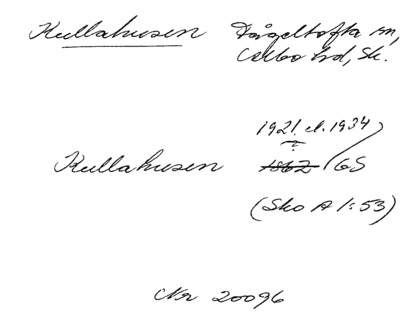 Kullahusen Fågeltofta sn,
Albo hd, Sk.
1921 el. 1934
?
Kullahusen 1862 / GS
(Sko A 1:53)
Nr 20096